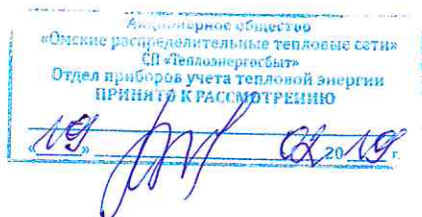 Акционерное общество
«Омские распределительные тепловые сети»
СП «Теплоэнергосбыт»
Отдел приборов учета тепловой энергии
ПРИНЯТО К РАССМОТРЕНИЮ
«19» 02 2019 г.